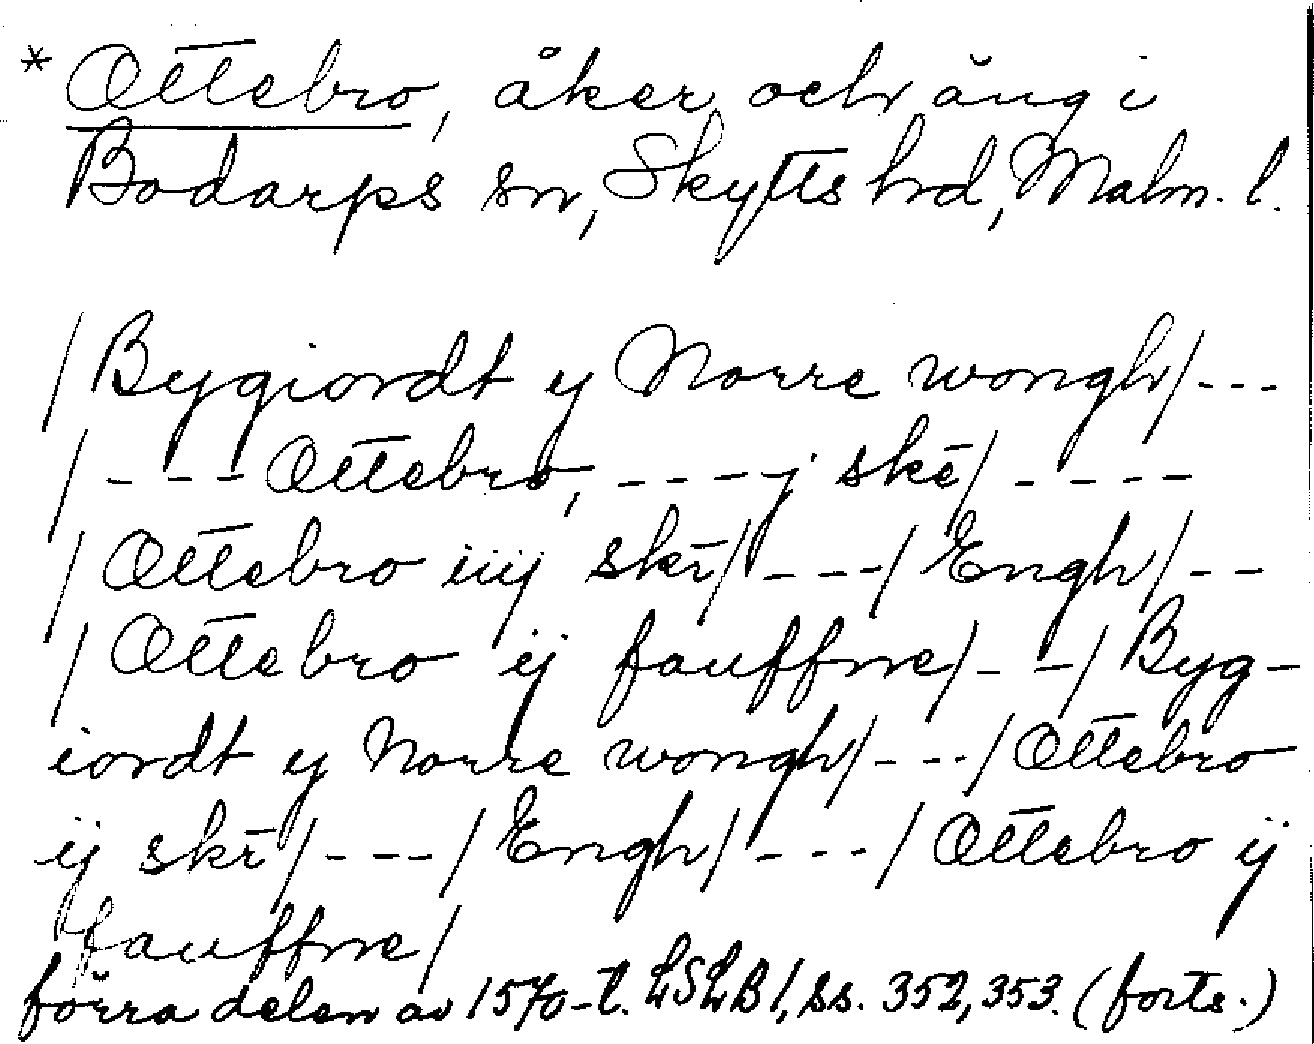 * Ottebro, åker och äng i
Bodarps sn, Skytts hd, Malm. l.
/Bygiordt y Norre wongh/---
/---Ottebro, ----j ske/----
/Ottebro iiij skr/---/Engh/--
/Ottebro ij fauffne/--/Byg-
iordt y Norre wongh/---/Ottebro
ij skr/---/Engh/---/Ottebro ij
fauffne/
förra delen av 1570-t. LSLB 1, ss. 352, 353. (forts.)